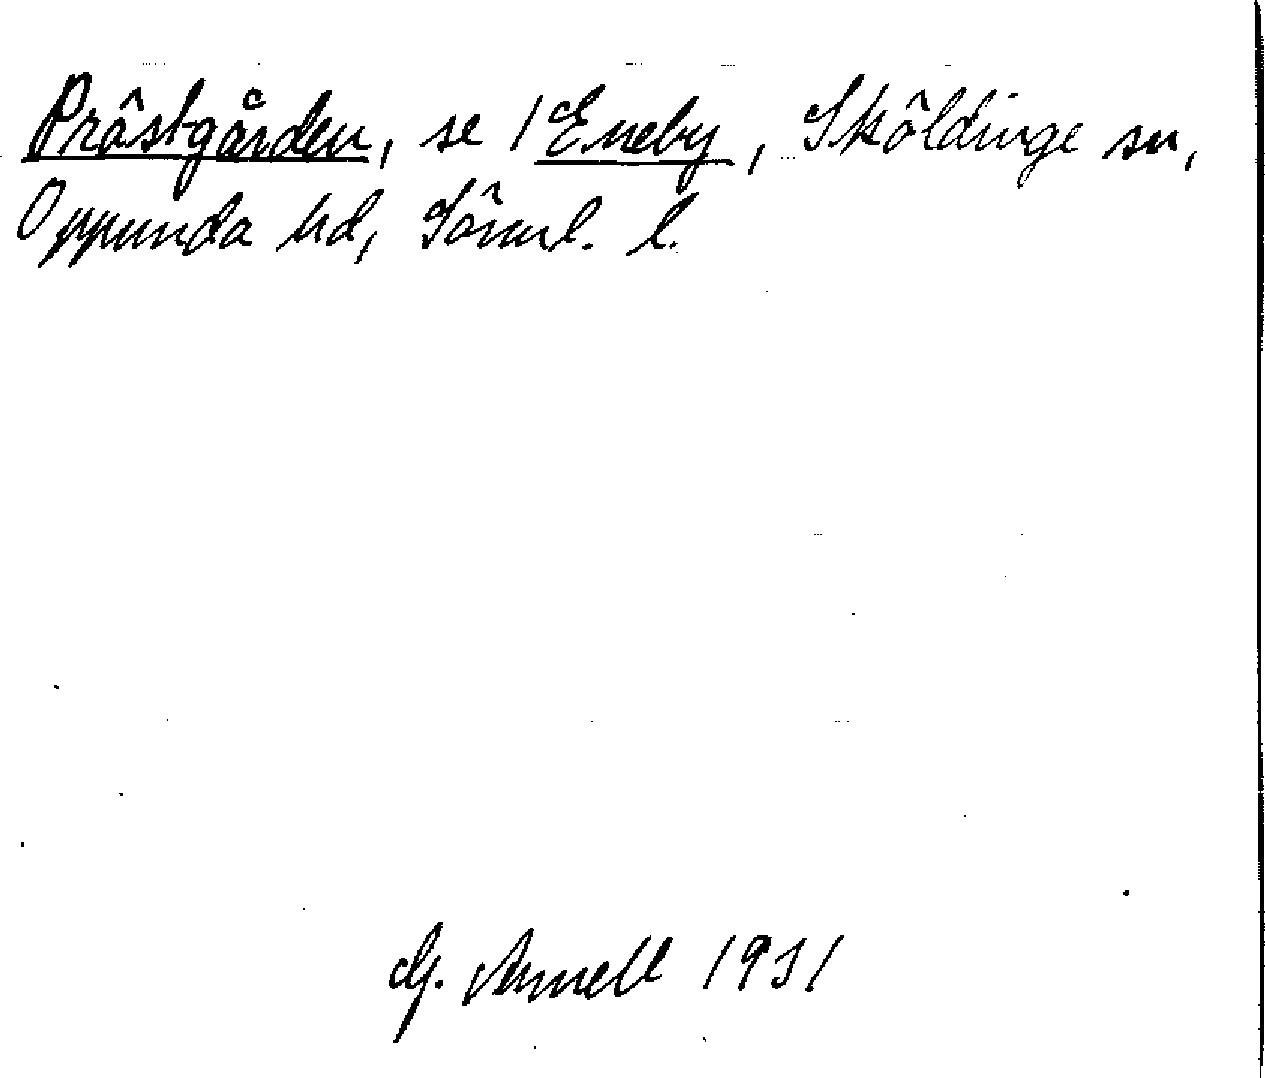 Prästgården, se 1 Eneby, Sköldinge sn,
Oppunda hd, Sörml. l.
G. Arnell 1931